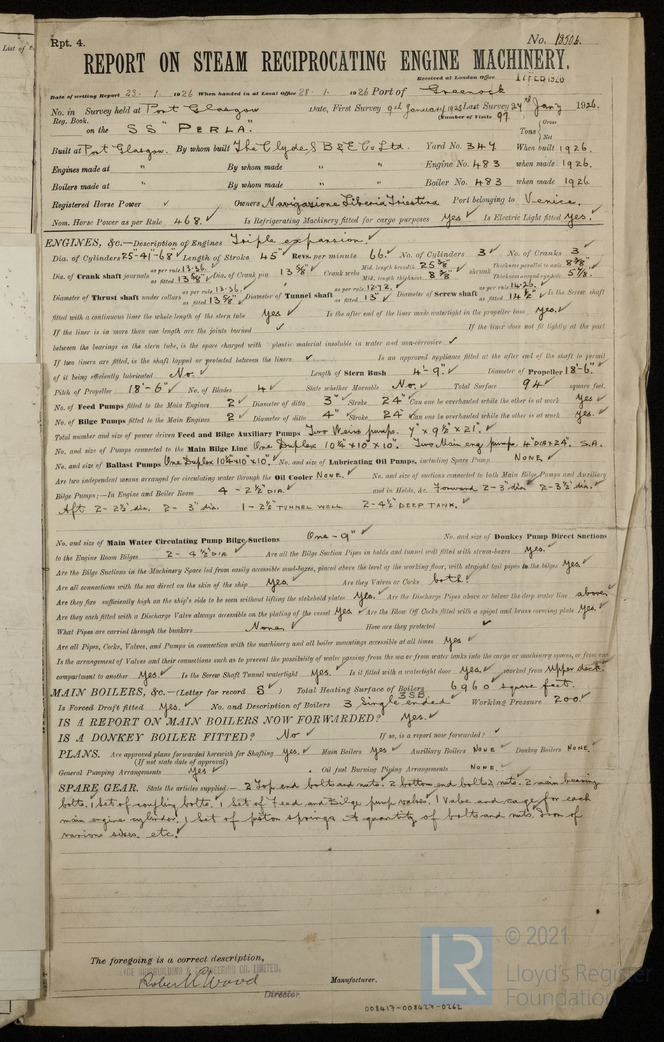 Rpt. 4.
No. 18506.
REPORT ON STEAM RECIPROCATING ENGINE MACHINERY.
Received at London Office 17 FEB 1926
Date of writing Report 23. 1. 1926 When handed in at Local Office 28. 1. 1926 Port of Greenock
No. in Survey held at Port Glasgow Date, First Survey 9th January 1925 Last Survey 24th Jany 1926.
Reg. Book. (Number of Visits 97)
on the SS "PERLA." Tons Gross Net
Built at Port Glasgow. By whom built The Clyde S B & E Co Ltd. Yard No. 347 When built 1926.
Engines made at " By whom made " " Engine No. 483 when made 1926.
Boilers made at " By whom made " " Boiler No. 483 when made 1926
Registered Horse Power Owners Navigazione Libera Triestina Port belonging to Venice.
Nom. Horse Power as per Rule 468. Is Refrigerating Machinery fitted for cargo purposes Yes Is Electric Light fitted Yes.
ENGINES, &c.—Description of Engines Triple expansion.
Dia. of Cylinders 25"-41"-68" Length of Stroke 45" Revs. per minute 66. No. of Cylinders 3 No. of Cranks 3
Dia. of Crank shaft journals as per rule 13.36. as fitted 13 5/8" Dia. of Crank pin 13 5/8" Crank webs Mid. length breadth 25 3/8" Mid. length thickness 8 3/8" shrunk Thickness parallel to axis 8 3/8" Thickness around eyehole 5 7/8"
Diameter of Thrust shaft under collars as per rule 13.36 as fitted 13 5/8" Diameter of Tunnel shaft as per rule 12.72. as fitted 13" Diameter of Screw shaft as per rule 14.26. as fitted 14 1/2" Is the Screw shaft
fitted with a continuous liner the whole length of the stern tube Yes Is the after end of the liner made watertight in the propeller boss Yes.
If the liner is in more than one length are the joints burned If the liner does not fit tightly at the part
between the bearings in the stern tube, is the space charged with a plastic material insoluble in water and non-corrosive
If two liners are fitted, is the shaft lapped or protected between the liners Is an approved appliance fitted at the after end of the shaft to permit
of it being efficiently lubricated No. Length of Stern Bush 4'-9" Diameter of Propeller 18'-6"
Pitch of Propeller 18'-6" No. of Blades 4 State whether Moveable No. Total Surface 94 square feet.
No. of Feed Pumps fitted to the Main Engines 2 Diameter of ditto 3" Stroke 24" Can one be overhauled while the other is at work Yes
No. of Bilge Pumps fitted to the Main Engines 2 Diameter of ditto 4" Stroke 24" Can one be overhauled while the other is at work Yes.
Total number and size of power driven Feed and Bilge Auxiliary Pumps Two Weirs pumps. 7" x 9 1/2" x 21".
No. and size of Pumps connected to the Main Bilge Line One Duplex 10 1/4" x 10" x 10". Two Main eng pumps. 4" DIA x 24". S.A.
No. and size of Ballast Pumps One Duplex 10 1/4" x 10" x 10". No. and size of Lubricating Oil Pumps, including Spare Pump NONE
Are two independent means arranged for circulating water through the Oil Cooler NONE. No. and size of suctions connected to both Main Bilge Pumps and Auxiliary
Bilge Pumps;—In Engine and Boiler Room 4 - 2 1/2" DIA and in Holds, &c. Forward 2-3" dia 2-3 1/2" dia.
Aft 2-2 1/2" dia. 2-3" dia. 1-2 1/2" TUNNEL WELL 2-4 1/2" DEEP TANK.
No. and size of Main Water Circulating Pump Bilge Suctions One-9" No. and size of Donkey Pump Direct Suctions
to the Engine Room Bilges 2 - 4 1/2" DIA Are all the Bilge Suction Pipes in holds and tunnel well fitted with strum-boxes Yes.
Are the Bilge Suctions in the Machinery Space led from easily accessible mud-boxes, placed above the level of the working floor, with straight tail pipes to the bilges Yes
Are all connections with the sea direct on the skin of the ship Yes. Are they Valves or Cocks both.
Are they fixed sufficiently high on the ship's side to be seen without lifting the stokehold plates Yes. Are the Discharge Pipes above or below the deep water line above
Are they each fitted with a Discharge Valve always accessible on the plating of the vessel Yes Are the Blow Off Cocks fitted with a spigot and brass covering plate Yes.
What Pipes are carried through the bunkers None How are they protected
Are all Pipes, Cocks, Valves, and Pumps in connection with the machinery and all boiler mountings accessible at all times Yes
Is the arrangement of Valves and their connections such as to prevent the possibility of water passing from the sea or from water tanks into the cargo or machinery spaces, or from one
compartment to another Yes Is the Screw Shaft Tunnel watertight Yes. Is it fitted with a watertight door Yes. worked from Upper deck.
MAIN BOILERS, &c.—(Letter for record S) Total Heating Surface of Boilers 6960 square feet.
Is Forced Draft fitted Yes. No. and Description of Boilers 3 Single ended 3 SB. Working Pressure 200.
IS A REPORT ON MAIN BOILERS NOW FORWARDED? Yes.
IS A DONKEY BOILER FITTED? No If so, is a report now forwarded?
PLANS. Are approved plans forwarded herewith for Shafting Yes. Main Boilers Yes Auxiliary Boilers NONE Donkey Boilers NONE.
(If not state date of approval)
General Pumping Arrangements Yes Oil fuel Burning Piping Arrangements NONE.
SPARE GEAR. State the articles supplied:— 2 Top end bolts and nuts. 2 bottom end bolts & nuts. 2 main bearing
bolts. 1 set of coupling bolts. 1 Set of Feed and Bilge pump valves. 1 Valve and cage for each
main engine cylinder. 1 Set of piston springs. A quantity of bolts and nuts. Iron of
various sizes. etc.
The foregoing is a correct description,
CLYDE SHIPBUILDING & ENGINEERING CO. LIMITED.
Robert C Wood Manufacturer.
Director
008417-008427-0262
LR
© 2021
Lloyd's Register
Foundation